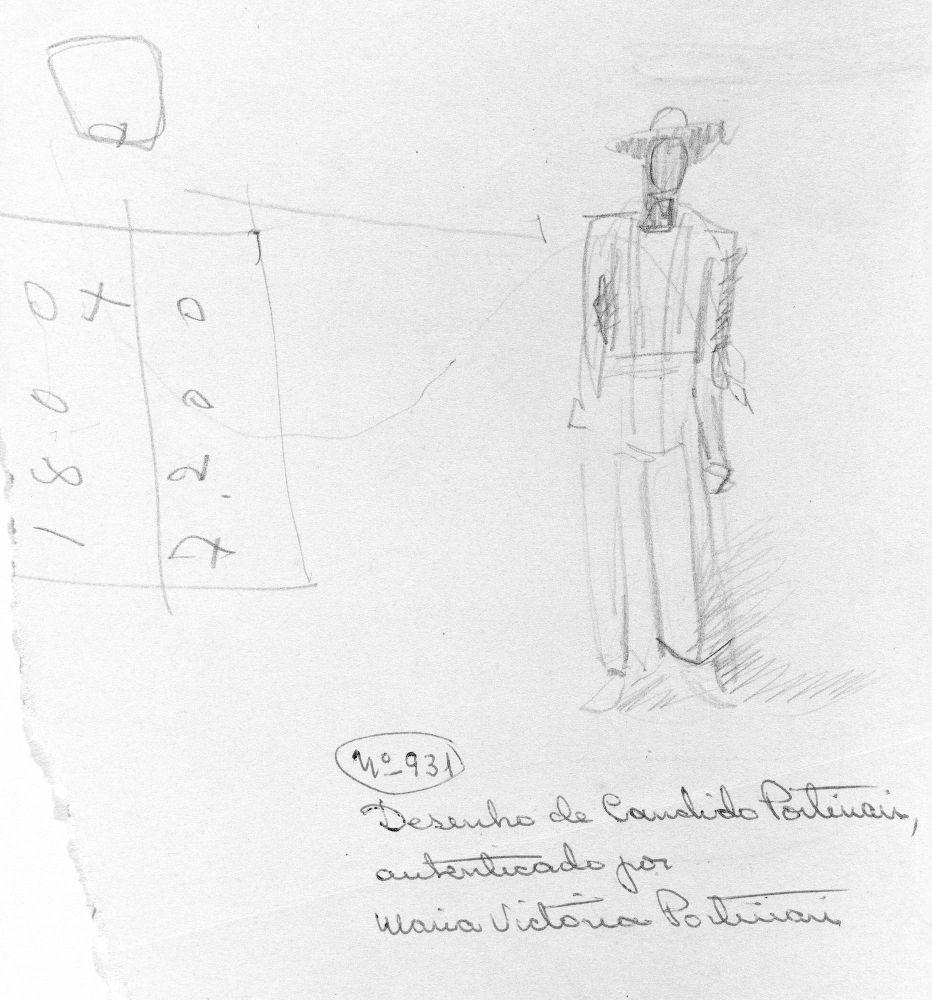 Nº 931
Desenho de Candido Portinari,
autenticado por
Maria Victoria Portinari
1800
7.200